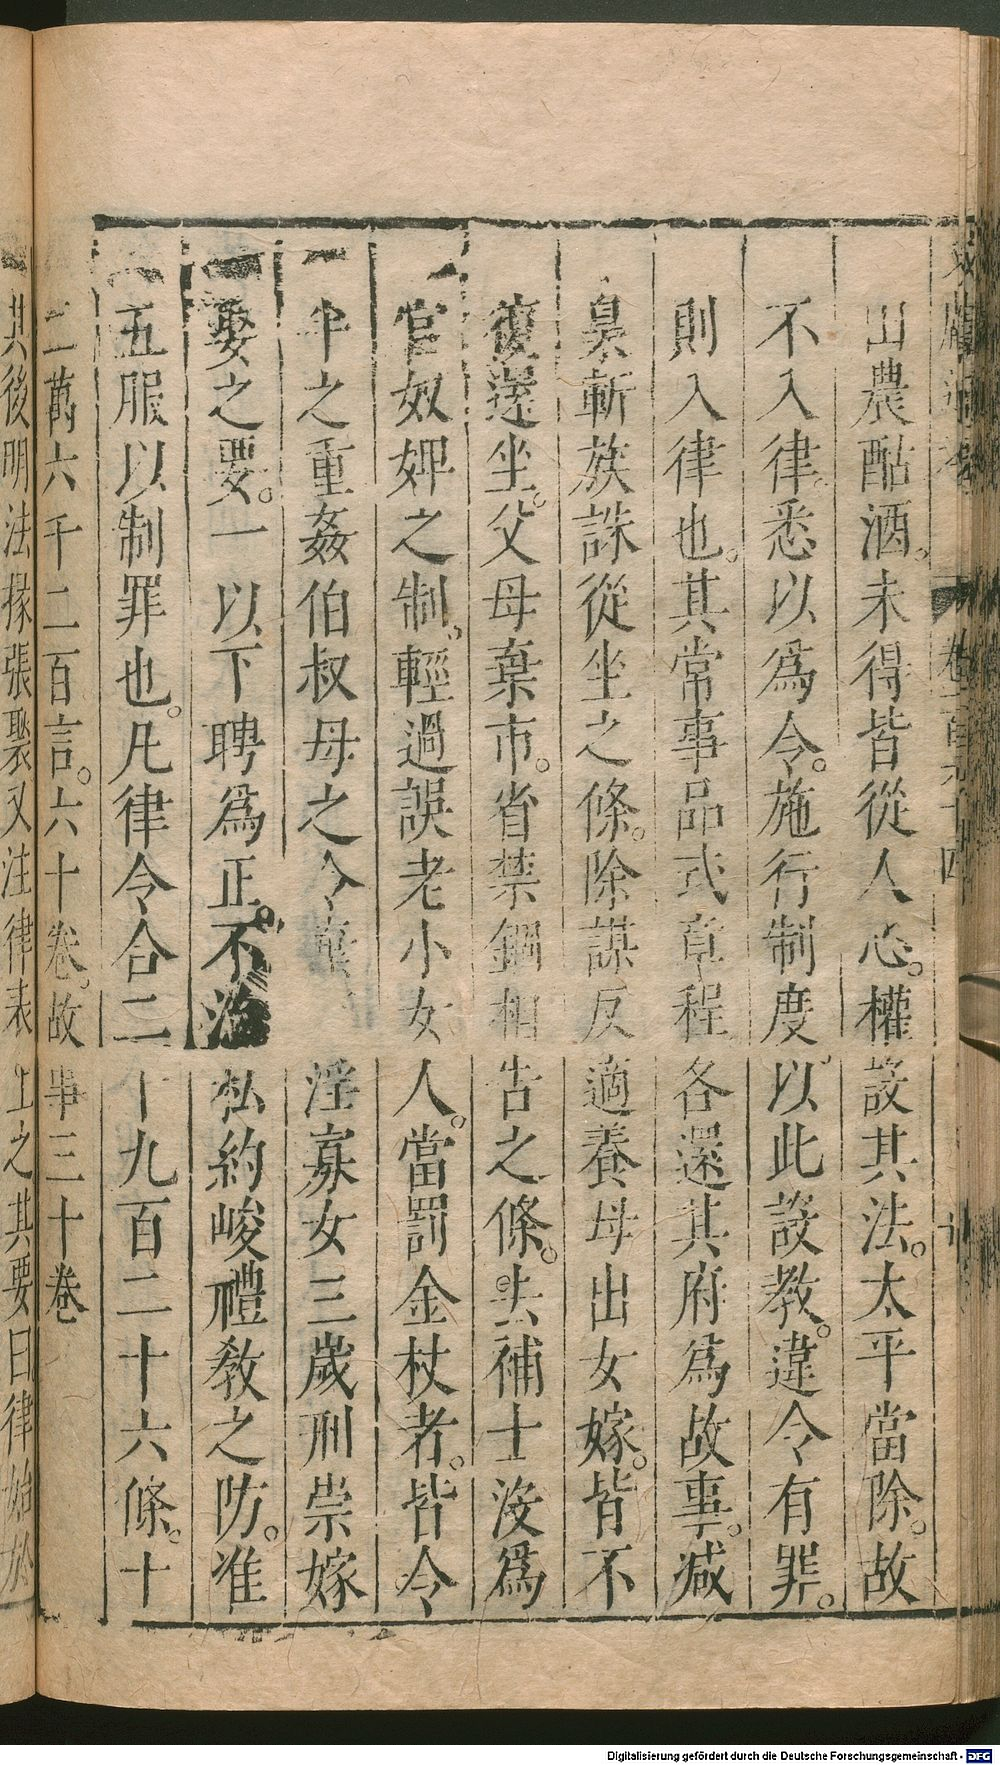 山農酤酒。未得皆從人心。權設其法。太平當除。故
不入律。悉以爲令。施行制度以此設教。違令有罪。
則入律也。其常事品式章程各還其府爲故事。減
梟斬族誅從坐之條。除謀反適養母出女嫁。皆不
復還坐。父母棄市。省禁錮相告之條。去捕士沒爲
官奴婢之制。輕過誤老小女人。當罰金杖者。皆令
半之重姦伯叔母之令棄淫寡女三歲刑崇嫁
娶之要。一以下聘爲正。不治私約峻禮教之防。准
五服以制罪也。凡律令合二十九百二十六條。十
二萬六千二百言。六十卷。故事三十卷
其後明法掾張裴又注律表上之其要曰律始於
Digitalisierung gefördert durch die Deutsche Forschungsgemeinschaft - DFG